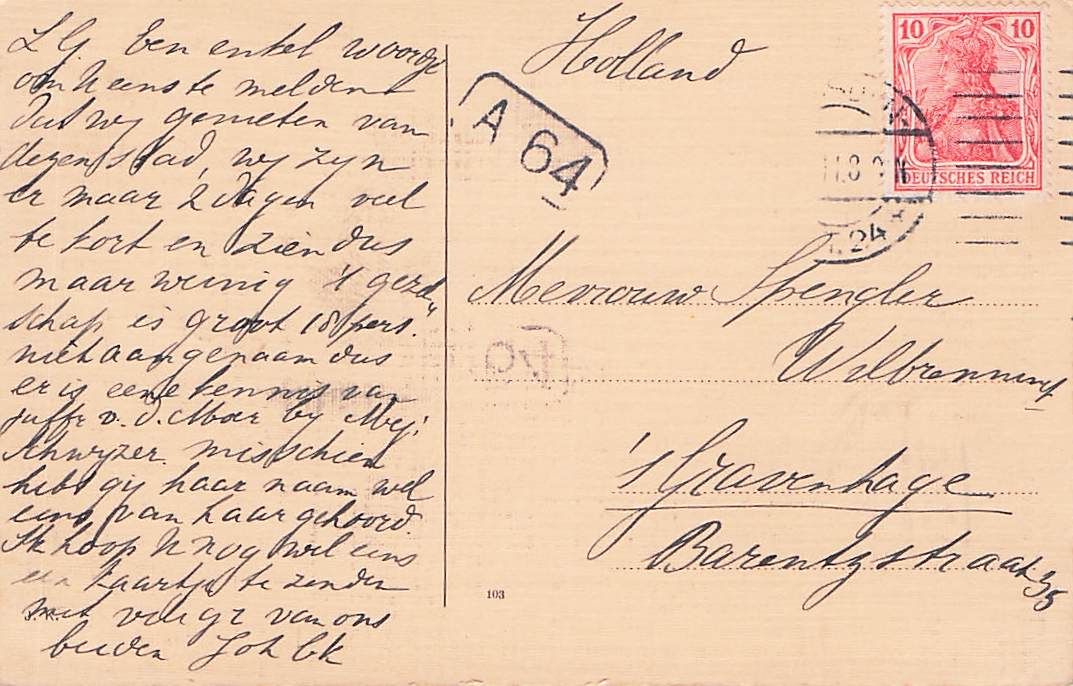 L G Een enkel woordje
om U eens te melden
dat wy genieten van
dezen stad, wy zyn
er maar 2 dagen veel
te kort en zien dus
maar weinig 't gezel"
schap is groot 18 pers."
niet aangenaam dus
er is eene kennis van
juffr v. d. Moer by Mej:
Schwyzer. misschien
hebt gij haar naam wel
eens van haar gehoord
Ik hoop U nog wel eens
een kaartje te zenden
met vele gr van ons
beiden Joh
103
Holland
A 64
10 10
DEUTSCHES REICH
24
Mevrouw Spengler
Wilbrennink
's Gravenhage
Barentzstraat 35